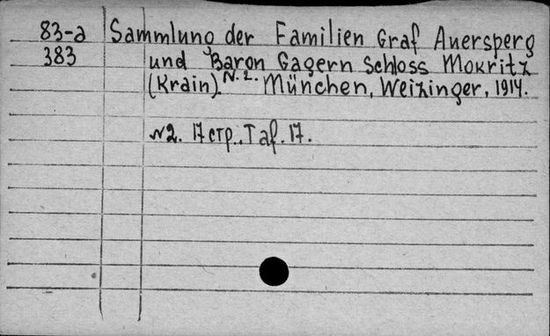 83-a Sammlung der Familien Graf Auersperg
383 und Baron Gagern Schloss Mokritz
(Krain). N.2. München, Weizinger, 1914.
N2. 17 стр., Taf. 17.